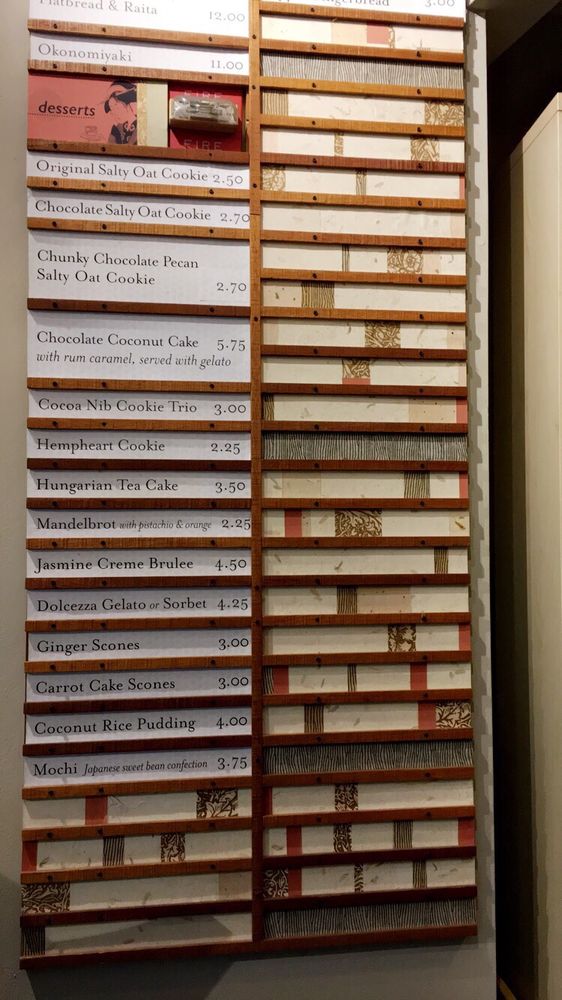 Flatbread & Raita 12.00
3.00
Okonomiyaki 11.00
desserts
FIRE
FIRE
Original Salty Oat Cookie 2.50
Chocolate Salty Oat Cookie 2.70
Chunky Chocolate Pecan
Salty Oat Cookie 2.70
Chocolate Coconut Cake 5.75
with rum caramel, served with gelato
Cocoa Nib Cookie Trio 3.00
Hempheart Cookie 2.25
Hungarian Tea Cake 3.50
Mandelbrot with pistachio & orange 2.25
Jasmine Creme Brulee 4.50
Dolcezza Gelato or Sorbet 4.25
Ginger Scones 3.00
Carrot Cake Scones 3.00
Coconut Rice Pudding 4.00
Mochi Japanese sweet bean confection 3.75